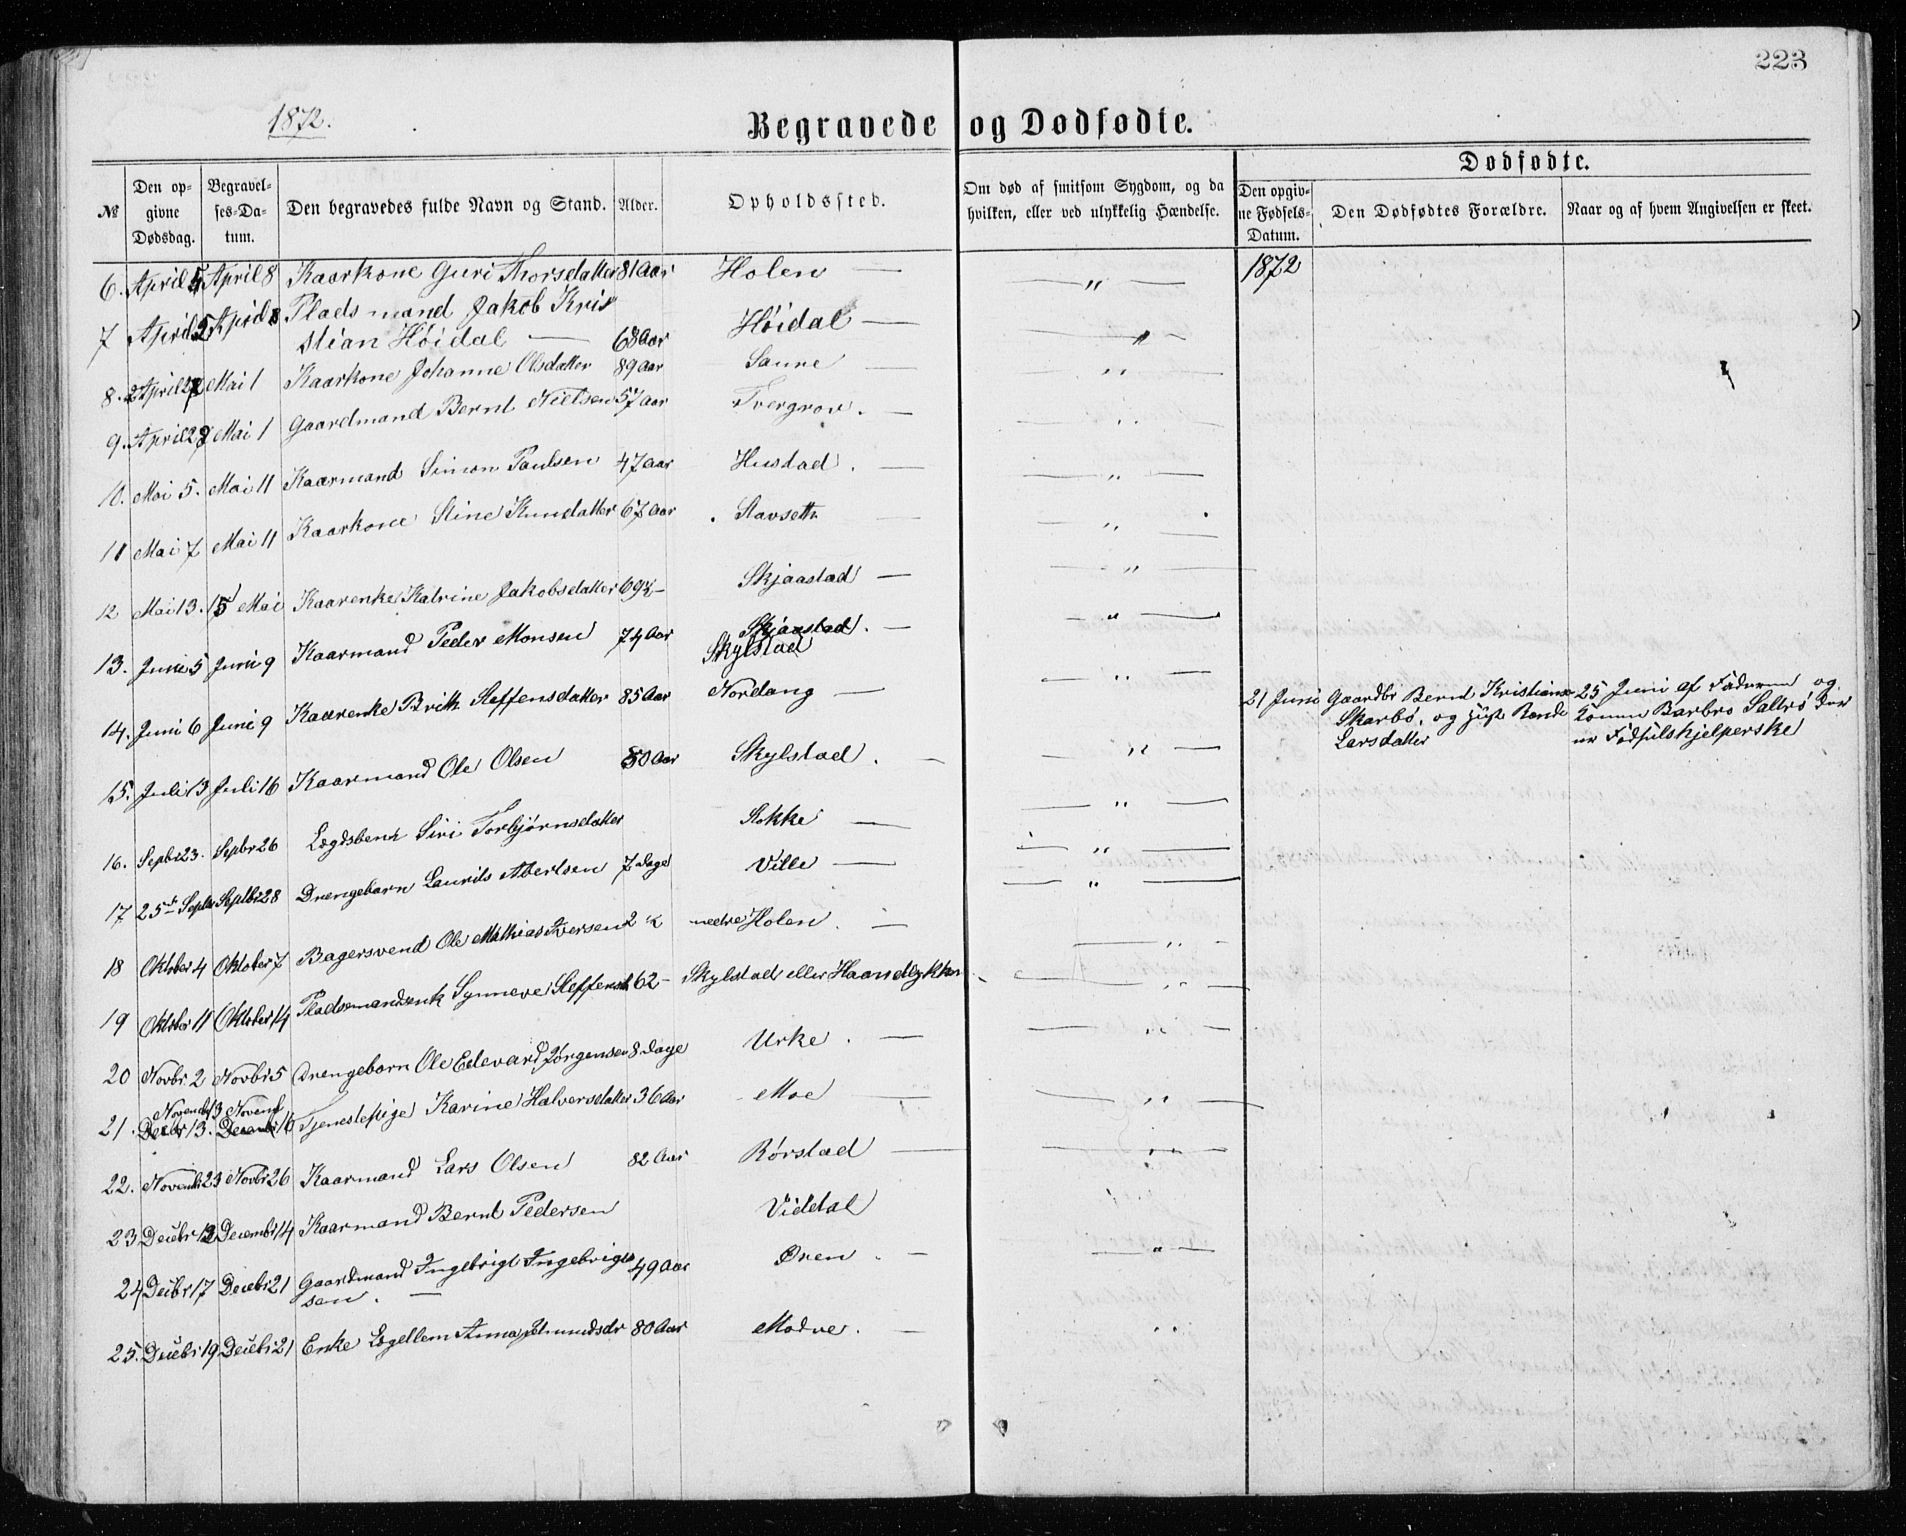 223
1872.
Begravede og Dødfødte.
Dødfødte.
№ Den opgivne Dødsdag. Begravelses-Datum. Den begravedes fulde Navn og Stand. Alder. Opholdssted. Om død af smitsom Sygdom, og da hvilken, eller ved ulykkelig Hændelse. Den opgivne Fødsels-Datum. Den Dødfødtes Forældre. Naar og af hvem Angivelsen er skeet.
6. April 5 April 8 Kaarkone Guri Thorsdatter 81 Aar Holen — " — 1872
7 April 5 April 8 Pladsmand Jakob Kri
stian Höidal — 68 Aar Höidal — " —
8. April 27 Mai 1 Kaarkone Johanne Olsdatter 89 Aar Saure — " —
9. April 27 Mai 1 Gaardmand Bernt Nielsen 57 Aar Tvergrov. — " —
10. Mai 5. Mai 11 Kaarmand Simon Paulsen 47 Aar Hustad. — " —
11 Mai 7 Mai 11 Kaarkone Stine Knudatter 67 Aar Stavseth — " —
12 Mai 13. 15 Mai Kaarenke Katrine Jakobsdatter 69 Skjaastad — " —
13. Juni 5 Juni 9 Kaarmand Peder Monsen 74 Aar Skjaastad. — " —
Skylstad
14. Juni 6 Juni 9 Kaarenke Brith Steffensdatter 85 Aar Nordang — " — 21 Juni Gaardbr Bernt Kristians 25 Juni af Faderen og
Skarbö, og Rande Konen Barbro Saltrö der
Larsdatter er Födselshjelperske
15. Juli 13 Juli 16 Kaarmand Ole Olsen 80 Aar Skylstad. — " —
16. Septbr 23. Septbr 26 Lægdsbenk Siri Torbjörnsdatter Stokke — " —
17 25de Septbr Septbr 28 Drengebarn Laurits Abertsen 7 Dage Ville — " —
18 Oktober 4 Oktober 7 Bagersvend Ole Mathias Iversen nedre Holen. — " —
19 Oktober 11 Oktober 14 Pladsmandsenk Synneve Steffensd 62 — Skylstad eller Haandlykken — " —
20 Novbr 2 Novbr 5 Drengebarn Ole Edevard Jörgensen 8 Dage Urke. — " —
Novembr 13 Novemb
21. Decbr 13. Decembr 16 Tjenestepige Karine Halversdatter 36 Aar Moe — " —
22. Novemb 23 Novbr 26 Kaarmand Lars Olsen 82 Aar Rörstad — " —
23 Decbr 12 Decembr 14 Kaarmand Bernt Pedersen Viddal
24 Decbr 17 Decebr 21 Gaardmand Ingebrigt Ingebrigt
sen. — 49 Aar Øren. — " —
25. Decbr 19 Decbr 21 Enke Legdlem Anna 80 Aar Modve. — "